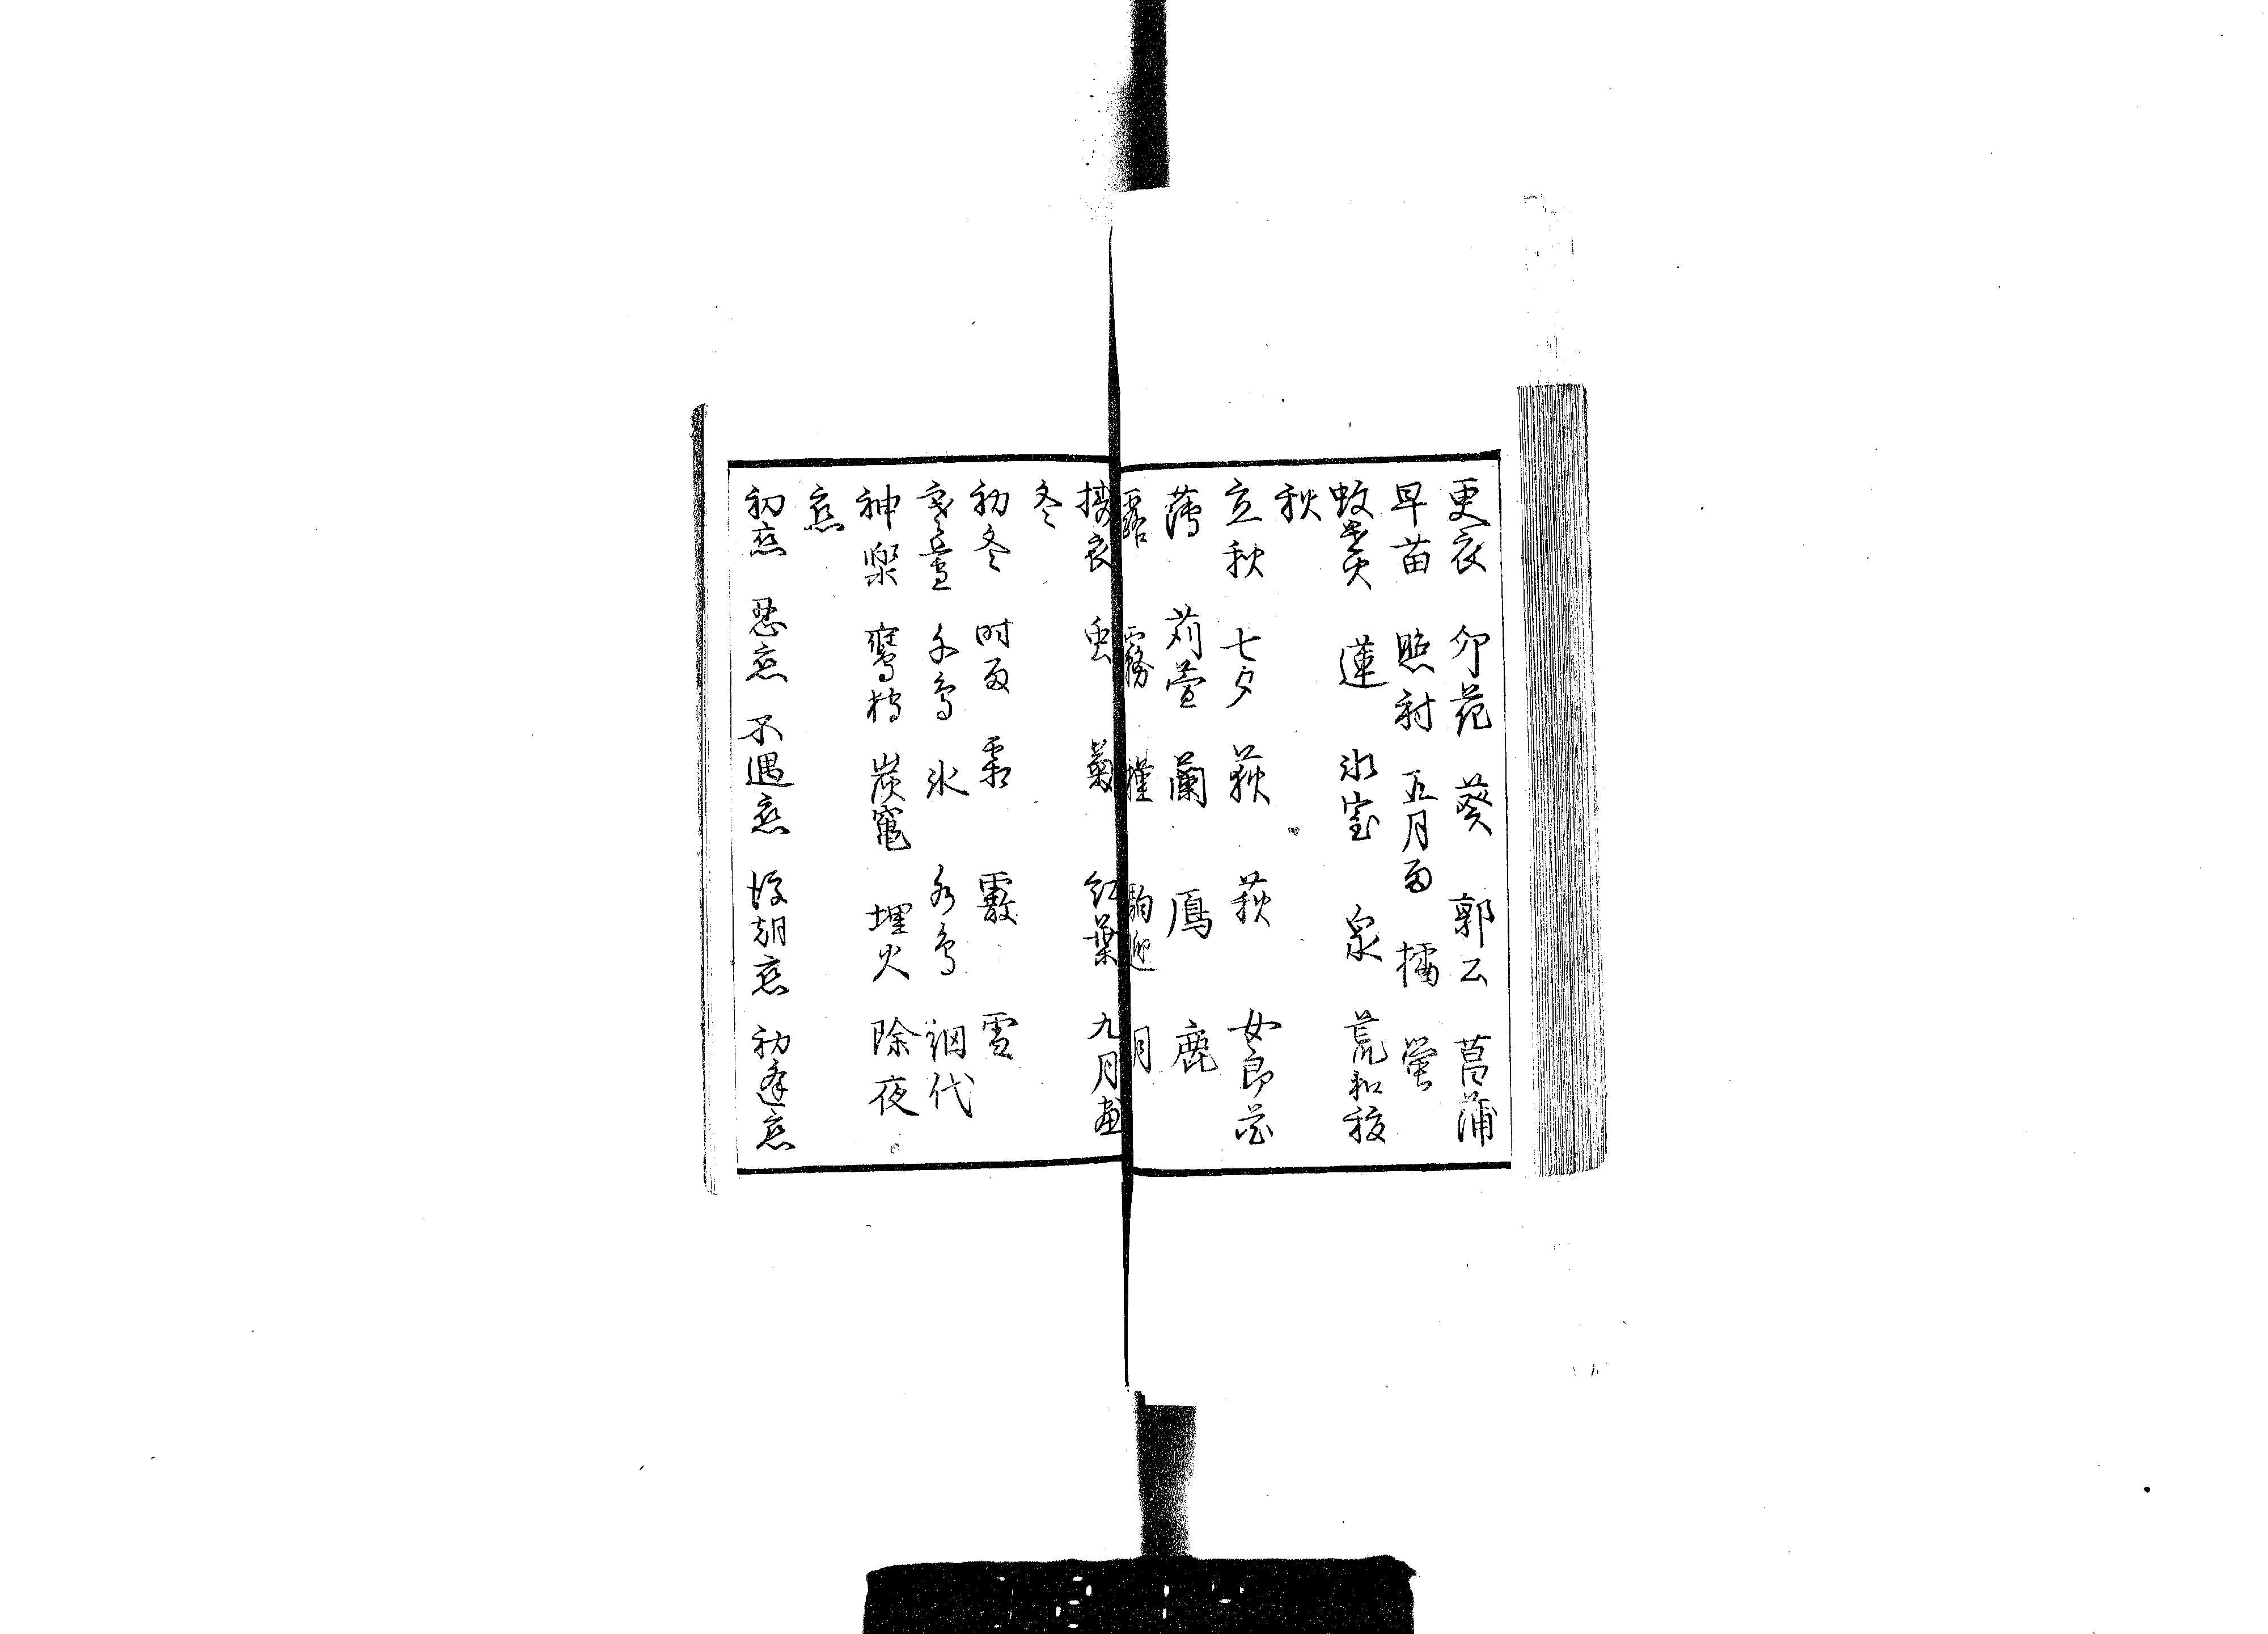 更衣 卯花 葵 郭公 菖蒲
早苗 照射 五月雨 橘 蛍
蚊遣火 蓮 氷室 泉 荒和祓
秋
立秋 七夕 萩 荻 女郎花
薄 苅萱 蘭 鴈 鹿
露 霧 槿 駒迎 月
擣衣 虫 菊 紅葉 九月盡
冬
初冬 时雨 霜 霰 雪
寒蘆 千鳥 氷 水鳥 網代
神樂 鷹狩 炭竃 埋火 除夜
恋
初恋 忍恋 不遇恋 後朝恋 初逢恋